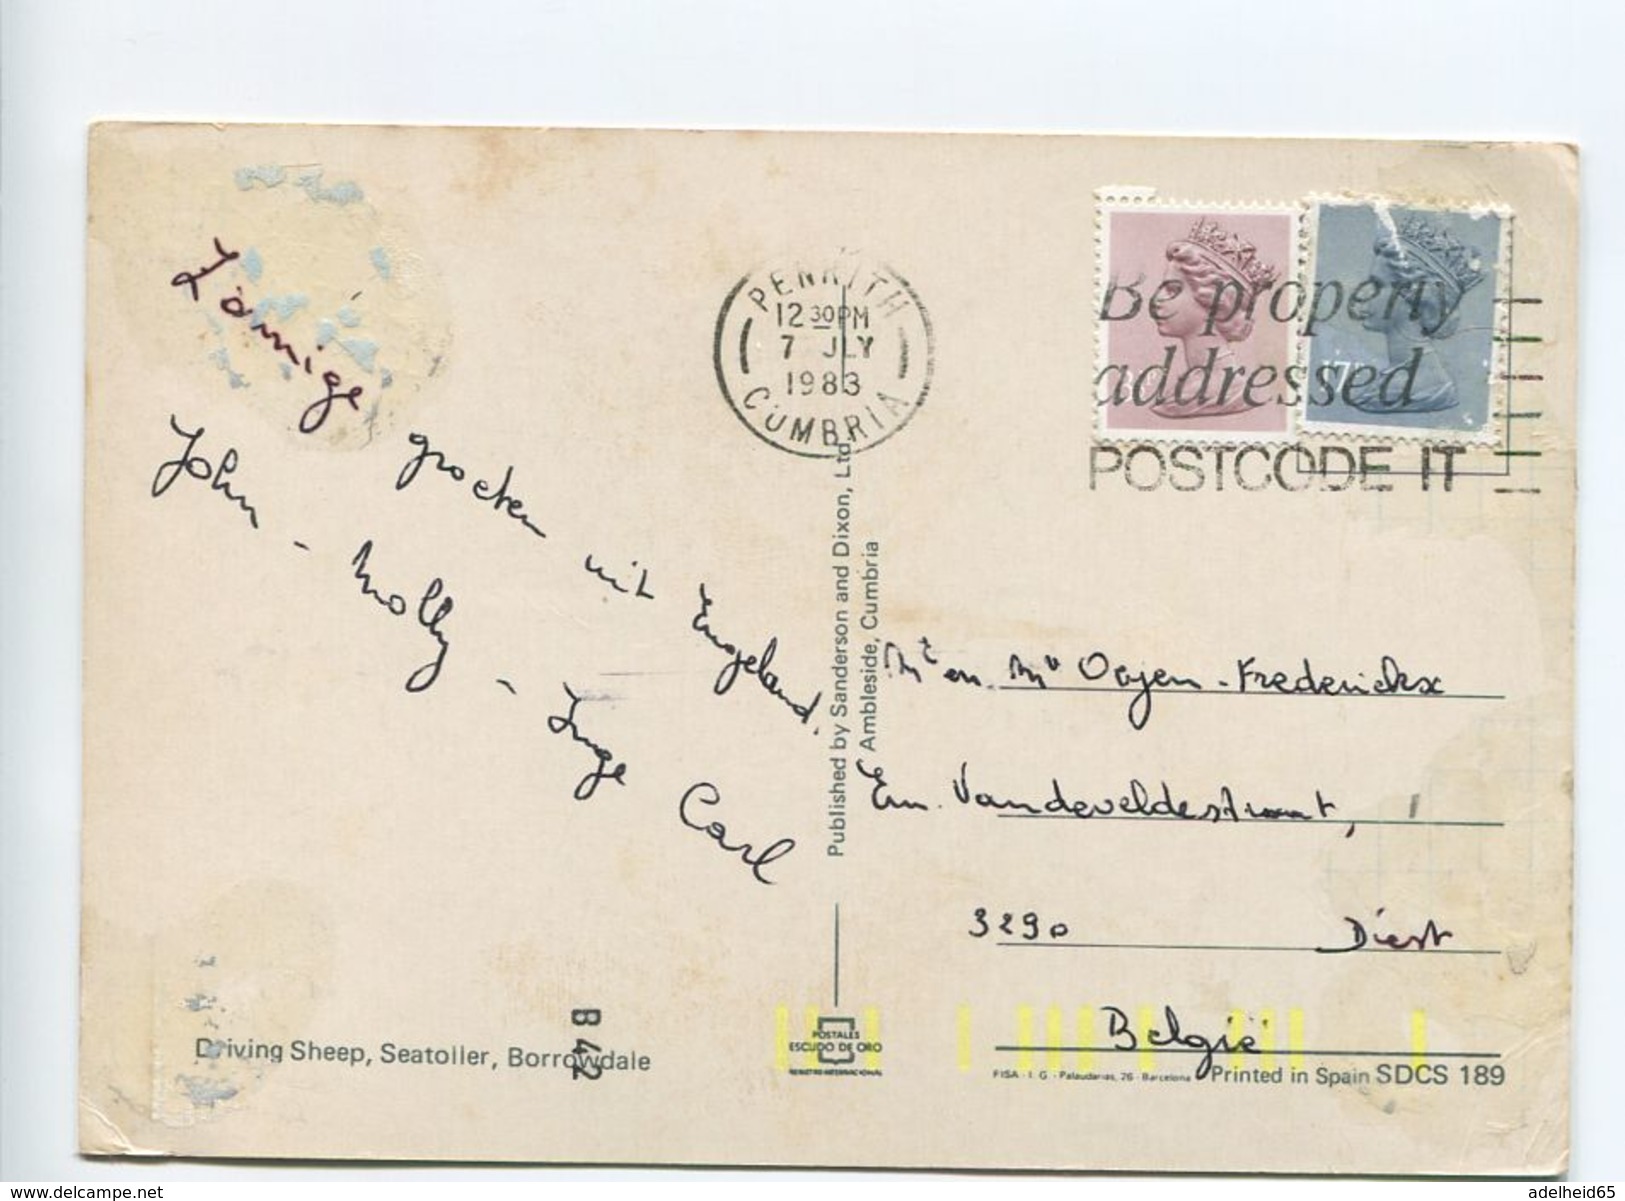 PENRITH
12 30PM
7 JLY
1983
CUMBRIA
Be properly
addressed
POSTCODE IT
17
Zonnige groeten uit Engeland.
John - Molly - Inge Carl
Published by Sanderson and Dixon, Ltd,
Ambleside, Cumbria
Mr en Mv Ooyen - Frederickx
Em. Vandeveldestraat,
3290 Diest
België
Driving Sheep, Seatoller, Borrowdale
B 42
POSTALES
ESCUDO DE ORO
REGISTRO INTERNACIONAL
FISA - I. G. - Palaudarias, 26 - Barcelona
Printed in Spain SDCS 189
delcampe.net
adelheid65